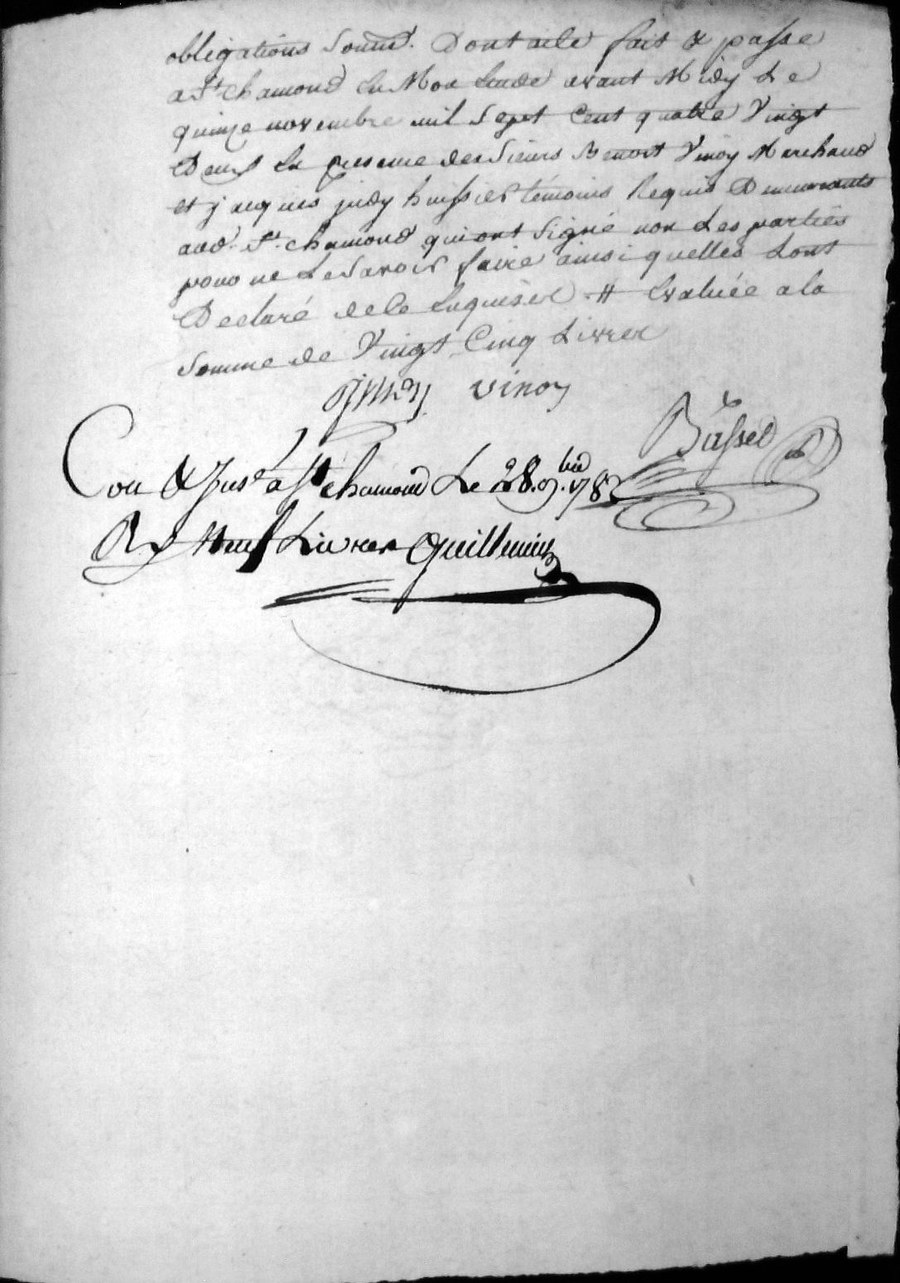 obligations Soumd. Dont acte fait & passé
a St. chamond En Mon Etude avant Midy Le
quinze novembre mil Sept Cent quatre Vingt
Deux En presence des Sieurs Benoit Vinoy Marchand
et jacques judy huissier témoins Requis Demeurants
aud. St. chamond qui ont Signé non Les parties
pour ne Le Savoir faire ainsi quelles Lont
Declaré de ce Enquises # Evaluée a la
Somme de Vingt Cinq Livres
Vinoy
Con & Ins. a St chamond Le 28. 9.bre 1782
R Neuf Livres Guillemin